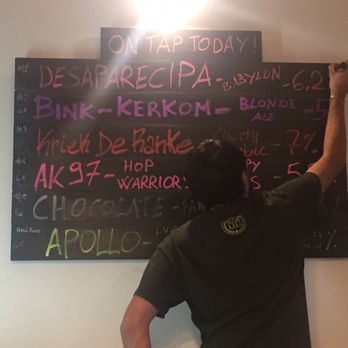 ON TAP TODAY!
#1 DESAPARECIPA - BABYLON - 6,2
#2 BINK - KERKOM - BLONDE ALE - 5
#3 Kriek De Ranke - 7%
#4 AK97 - HOP WARRIORS - 5
#5 CHOCOLATE -
APOLLO - 9%